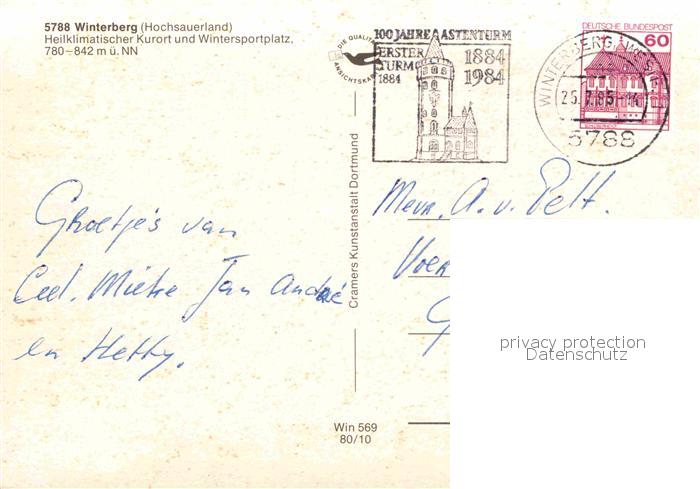 5788 Winterberg (Hochsauerland)
Heilklimatischer Kurort und Wintersportplatz,
780–842 m ü. NN
DIE QUALITÄTS
ANSICHTSKARTE
100 JAHRE ASTENTURM
ERSTER
TURM
1884
1884
1984
WINTERBERG, WESTF
25.7.85-14
5788
DEUTSCHE BUNDESPOST
60
Groetjes van
Ced. Mieke Jan André
en Hetty.
Cramers Kunstanstalt Dortmund
Mevr. A. v. Pelt.
privacy protection
Datenschutz
Win 569
80/10